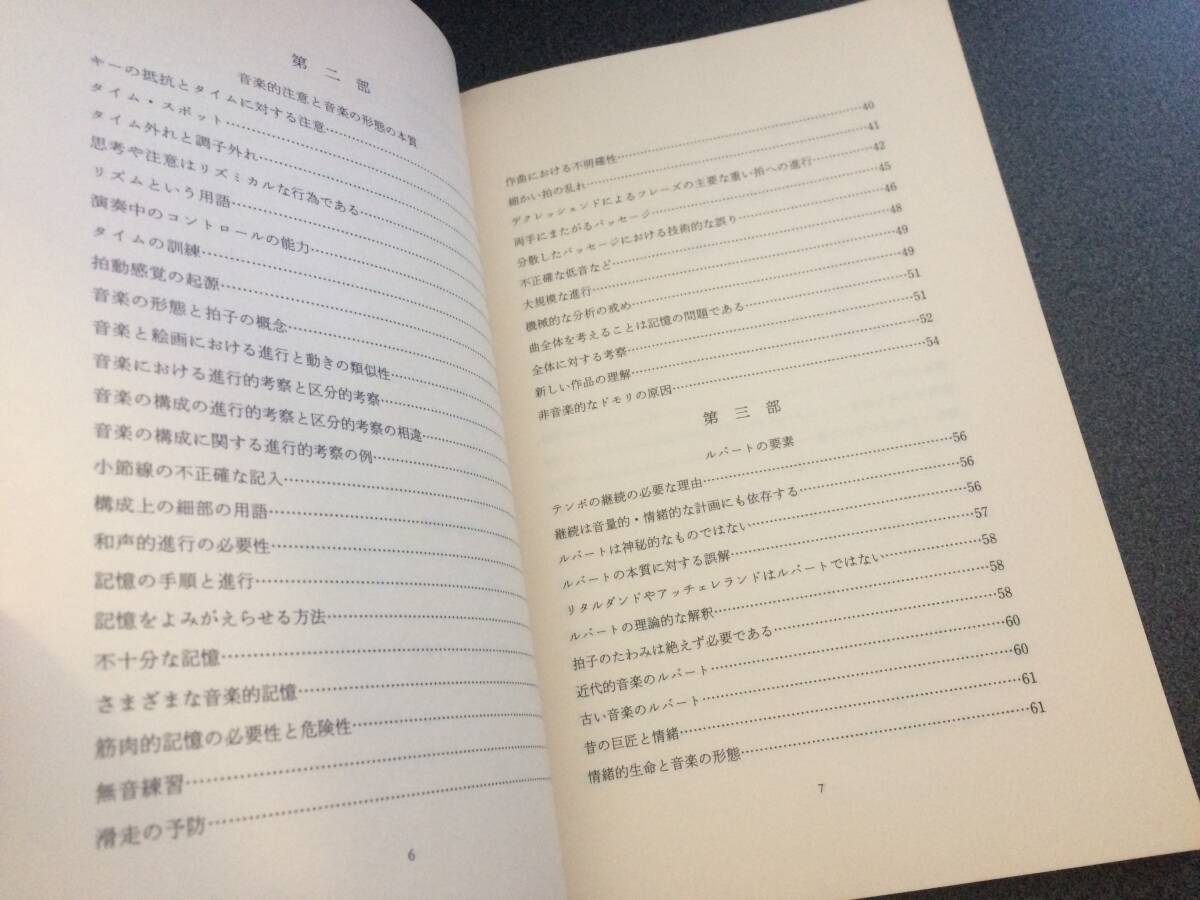 第二部
音楽的注意と音楽の形態の本質
キーの抵抗とタイムに対する注意……………
タイム・スポット……………
タイム外れと調子外れ……………
思考や注意はリズミカルな行為である……………
リズムという用語……………
演奏中のコントロールの能力……………
タイムの訓練……………
拍動感覚の起源……………
音楽の形態と拍子の概念……………
音楽と絵画における進行と動きの類似性……………
音楽における進行的考察と区分的考察……………
音楽の構成の進行的考察と区分的考察の相違……………
音楽の構成に関する進行的考察の例……………
小節線の不正確な記入……………
構成上の細部の用語……………
和声的進行の必要性……………
記憶の手順と進行……………
記憶をよみがえらせる方法……………
不十分な記憶……………
さまざまな音楽的記憶……………
筋肉的記憶の必要性と危険性……………
無音練習……………
滑走の予防……………
6
作曲における不明確性……………40
細かい拍の乱れ……………41
デクレッシェンドによるフレーズの主要な重い拍への進行……………42
両手にまたがるパッセージ……………45
分散したパッセージにおける技術的な誤り……………46
不正確な低音など……………48
大規模な進行……………49
機械的な分析の戒め……………49
曲全体を考えることは記憶の問題である……………51
全体に対する考察……………51
新しい作品の理解……………52
非音楽的なドモリの原因……………54
第三部
ルバートの要素
テンポの継続の必要な理由……………56
継続は音量的・情緒的な計画にも依存する……………56
ルバートは神秘的なものではない……………56
ルバートの本質に対する誤解……………57
リタルダンドやアッチェレランドはルバートではない……………58
ルバートの理論的な解釈……………58
拍子のたわみは絶えず必要である……………58
近代的音楽のルバート……………60
古い音楽のルバート……………60
昔の巨匠と情緒……………61
情緒的生命と音楽の形態……………61
7